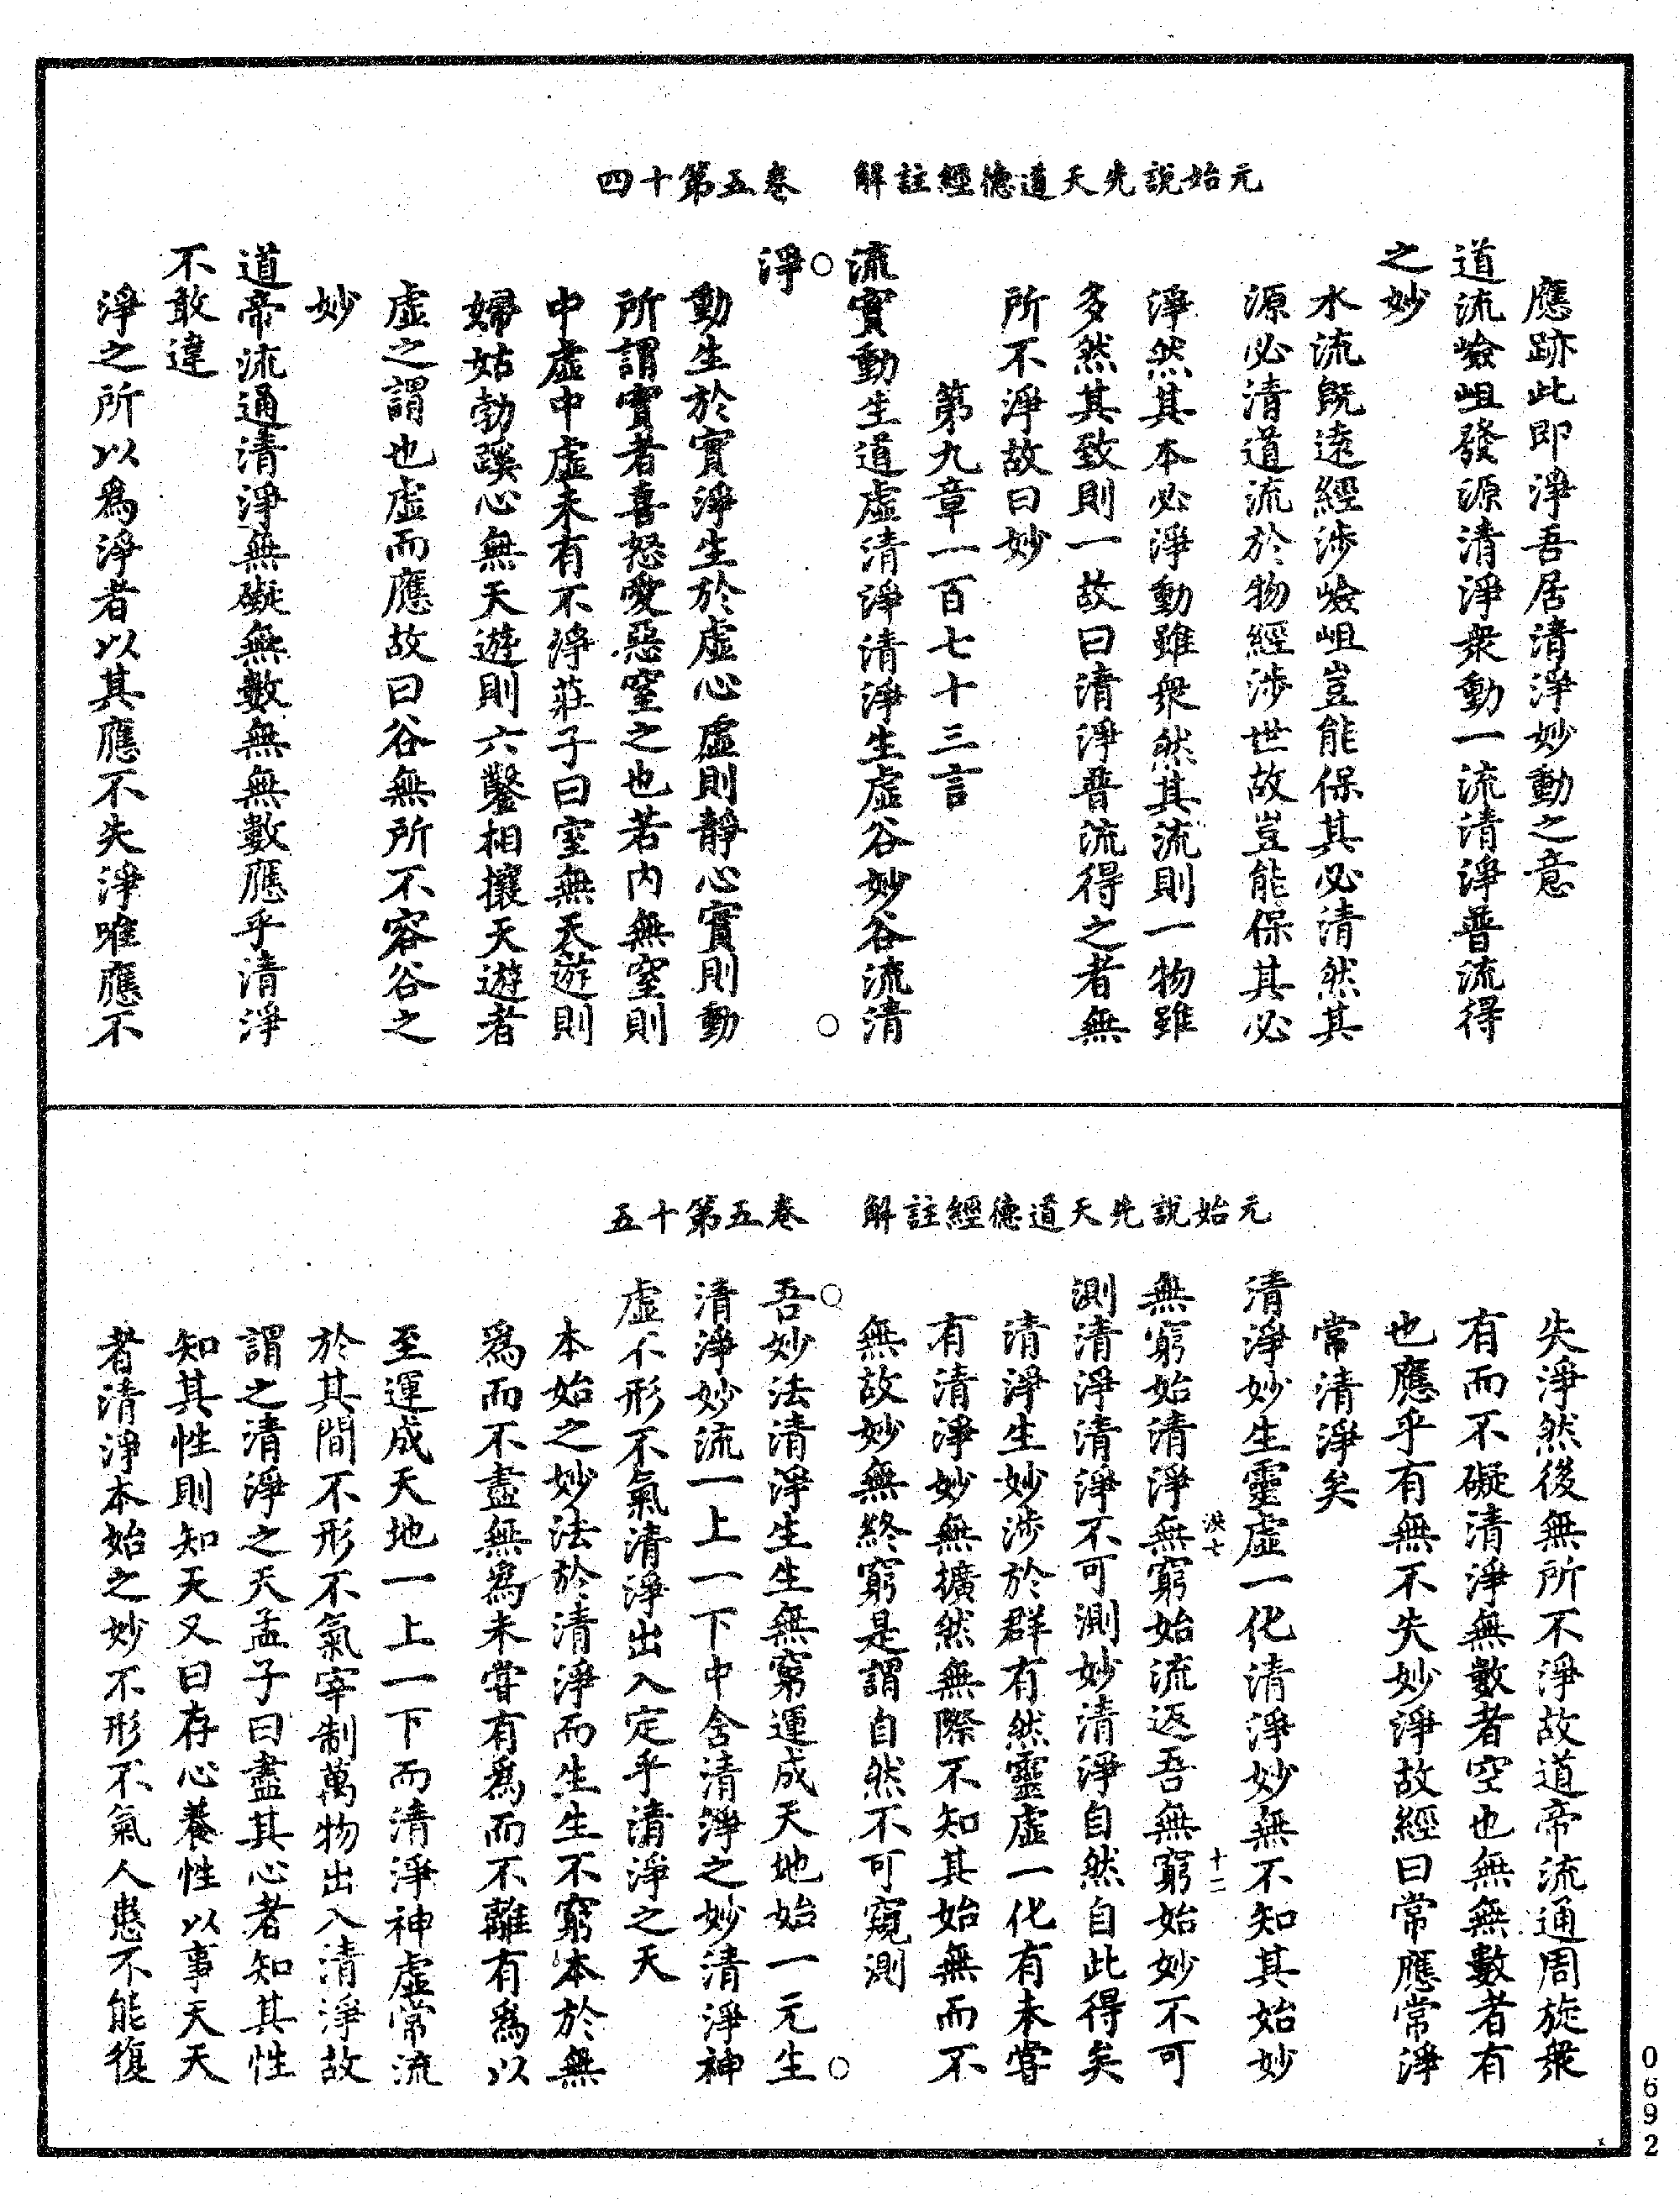 元始說先天道德經註解　卷五第十四
應跡此即淨吾居清淨妙動之意
道流嶮岨發源清淨衆動一流清淨普流得
之妙
水流旣遠經涉嶮岨豈能保其必清然其
源必清道流於物經涉世故豈能保其必
淨然其本必淨動雖衆然其流則一物雖
多然其致則一故曰清淨普流得之者無
所不淨故曰妙
第九章一百七十三言
流實動生道虛清淨清淨生虛谷妙谷流清
○○
淨
動生於實淨生於虛心虛則靜心實則動
所謂實者喜怒愛惡窒之也若内無窒則
中虛中虛未有不淨莊子曰室無天遊則
婦姑勃蹊心無天遊則六鑿相攘天遊者
虛之謂也虛而應故曰谷無所不容谷之
妙
道帝流通清淨無礙無數無無數應乎清淨
不敢違
淨之所以爲淨者以其應不失淨唯應不
元始說先天道德經註解　卷五第十五
失淨然後無所不淨故道帝流通周旋衆
有而不礙清淨無數者空也無無數者有
也應乎有無不失妙淨故經曰常應常淨
常清淨矣
清淨妙生靈虛一化清淨妙無不知其始妙
淡七　十二
無窮始清淨無窮始流返吾無窮始妙不可
測清淨清淨不可測妙清淨自然自此得矣
清淨生妙涉於群有然靈虛一化有未甞
有清淨妙無擴然無際不知其始無而不
無故妙無終窮是謂自然不可窺測
○○
吾妙法清淨生生無窮運成天地始一元生
清淨妙流一上一下中含清淨之妙清淨神
虛不形不氣清淨出入定乎清淨之天
本始之妙法於清淨而生生不窮本於無
爲而不盡無爲未甞有爲而不離有爲以
至運成天地一上一下而清淨神虛常流
於其間不形不氣宰制萬物出入清淨故
謂之清淨之天孟子曰盡其心者知其性
知其性則知天又曰存心養性以事天天
者清淨本始之妙不形不氣人患不能復
0692